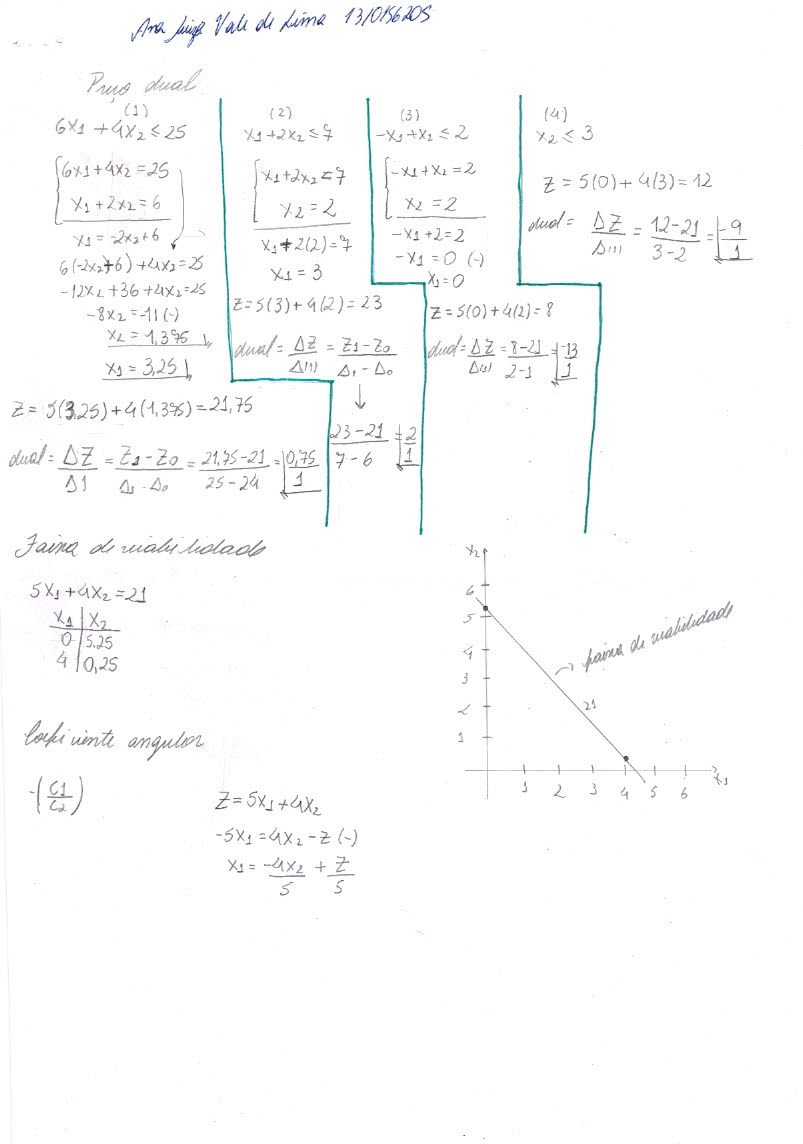 Ana Luiza Vale de Lima 13/0156205
Preço dual
(1)
6x1 + 4x2 ≤ 25
6x1 + 4x2 = 25
x1 + 2x2 = 6
x1 = -2x2 + 6
6(-2x2+6) + 4x2 = 25
-12x2 + 36 + 4x2 = 25
-8x2 = -11 (-)
x2 = 1,375
x1 = 3,25
Z = 5(3,25) + 4(1,375) = 21,75
dual = ΔZ/Δ1 = Z1 - Z0/Δ1 - Δ0 = 21,75 - 21/25 - 24 = 0,75/1
(2)
x1 + 2x2 ≤ 7
x1 + 2x2 = 7
x2 = 2
x1 + 2(2) = 7
x1 = 3
Z = 5(3) + 4(2) = 23
dual = ΔZ/Δ(1) = Z1 - Z0/Δ1 - Δ0
23 - 21/7 - 6 = 2/1
(3)
-x1 + x2 ≤ 2
-x1 + x2 = 2
x2 = 2
-x1 + 2 = 2
-x1 = 0 (-)
x1 = 0
Z = 5(0) + 4(2) = 8
dual = ΔZ/Δ(1) = 8 - 21/2 - 1 = -13/1
(4)
x2 ≤ 3
Z = 5(0) + 4(3) = 12
dual = ΔZ/Δ(1) = 12 - 21/3 - 2 = -9/1
Faixa de viabilidade
5x1 + 4x2 = 21
x1 | x2
0 | 5,25
4 | 0,25
x2
6
5
4
3
2
1
1 2 3 4 5 6 x1
21
faixa de viabilidade
Coeficiente angular
-(C1/C2)
Z = 5x1 + 4x2
-5x1 = 4x2 - Z (-)
x1 = -4x2/5 + Z/5